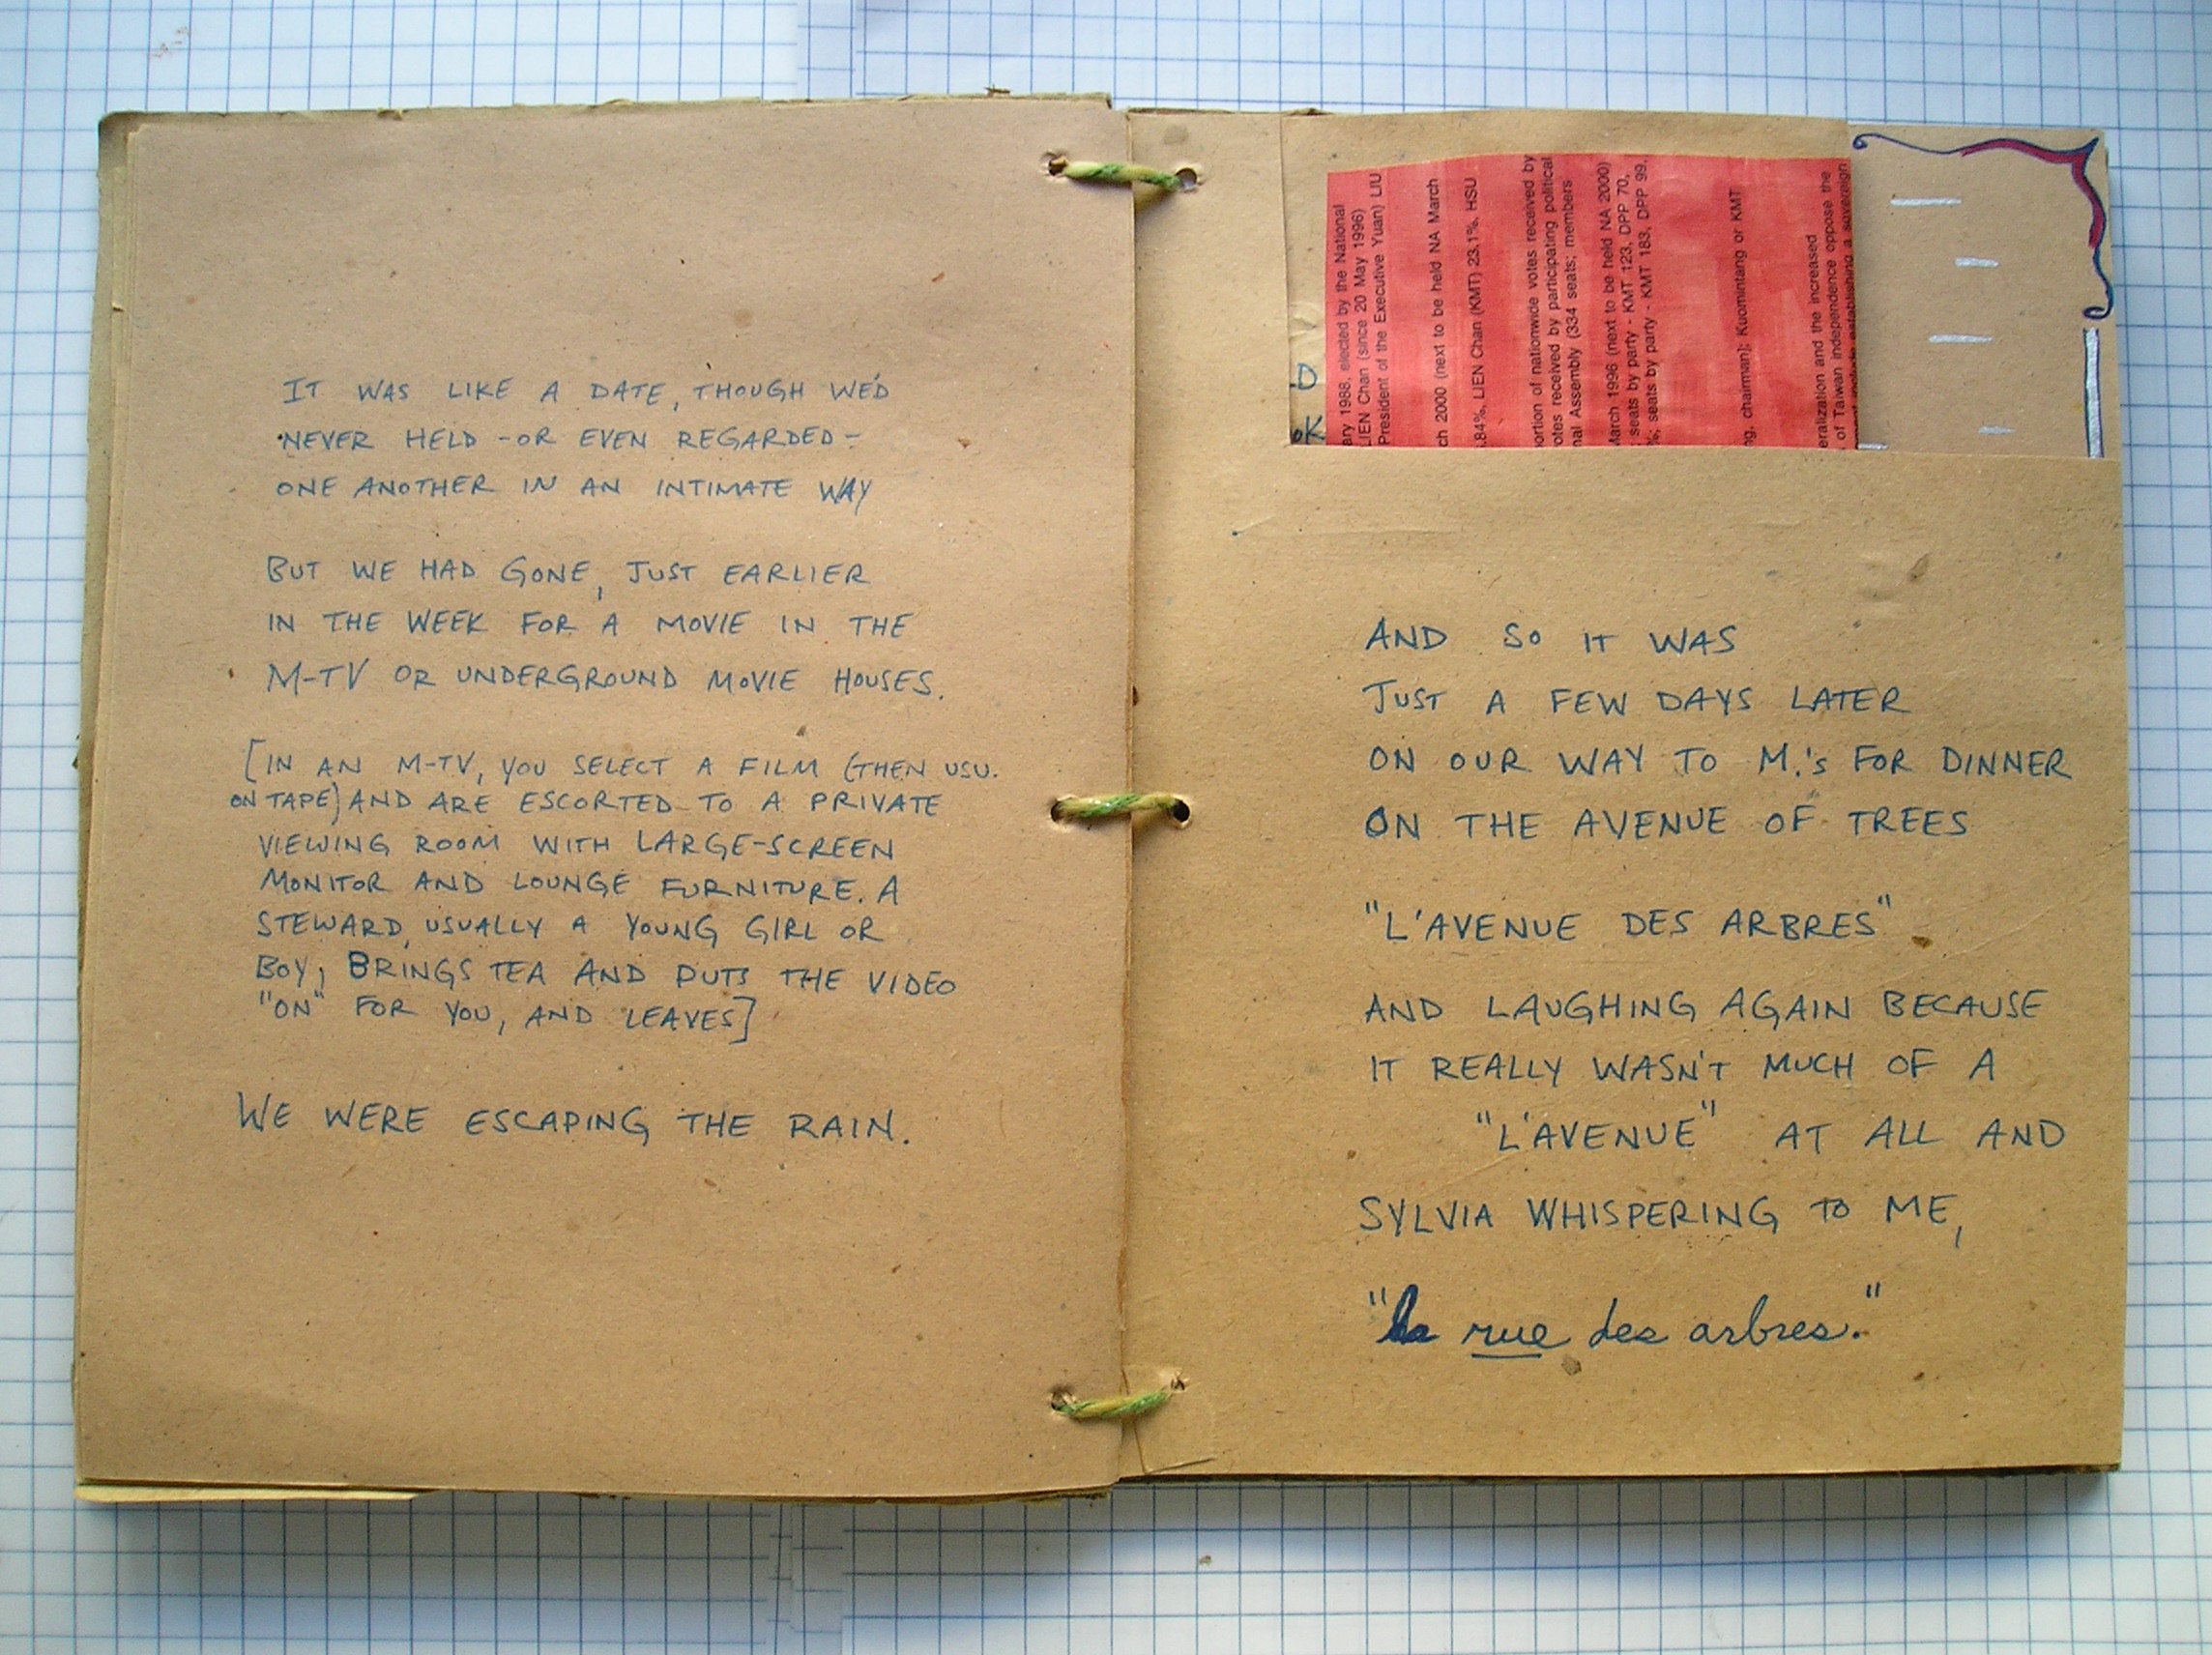 IT WAS LIKE A DATE, THOUGH WE'D
NEVER HELD - OR EVEN REGARDED -
ONE ANOTHER IN AN INTIMATE WAY
BUT WE HAD GONE, JUST EARLIER
IN THE WEEK FOR A MOVIE IN THE
M-TV OR UNDERGROUND MOVIE HOUSES.
[IN AN M-TV, YOU SELECT A FILM (THEN USU.
ON TAPE) AND ARE ESCORTED TO A PRIVATE
VIEWING ROOM WITH LARGE-SCREEN
MONITOR AND LOUNGE FURNITURE. A
STEWARD, USUALLY A YOUNG GIRL OR
BOY, BRINGS TEA AND PUTS THE VIDEO
"ON" FOR YOU, AND LEAVES]
WE WERE ESCAPING THE RAIN.
D
OK
ary 1988, elected by the National
LIEN Chan (since 20 May 1996)
President of the Executive Yuan) LIU
ch 2000 (next to be held NA March
.84%, LIEN Chan (KMT) 23.1%, HSU
ortion of nationwide votes received by
otes received by participating political
nal Assembly (334 seats; members
March 1996 (next to be held NA 2000)
seats by party - KMT 123, DPP 70,
%; seats by party - KMT 183, DPP 99,
ng, chairman]; Kuomintang or KMT
eralization and the increased
of Taiwan independence oppose the
establishing a sovereign
AND SO IT WAS
JUST A FEW DAYS LATER
ON OUR WAY TO M.'s FOR DINNER
ON THE AVENUE OF TREES
"L'AVENUE DES ARBRES"
AND LAUGHING AGAIN BECAUSE
IT REALLY WASN'T MUCH OF A
"L'AVENUE" AT ALL AND
SYLVIA WHISPERING TO ME,
"la rue des arbres."